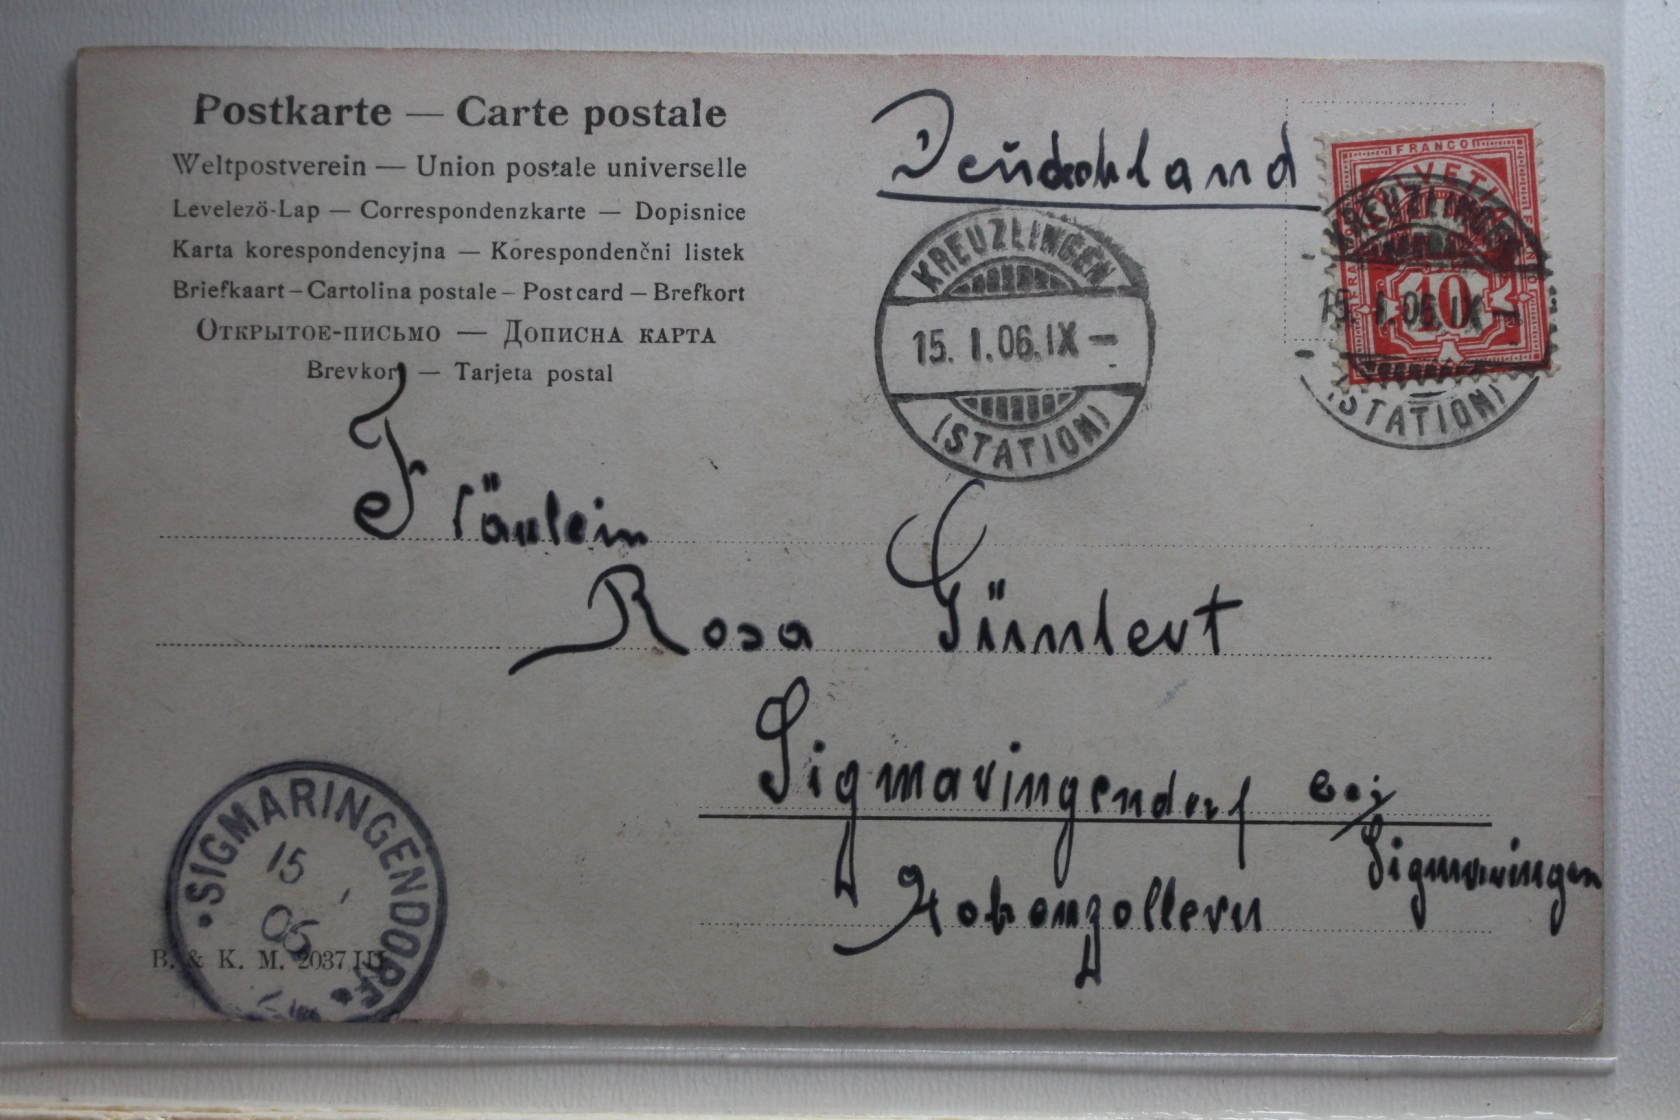 Postkarte — Carte postale
Weltpostverein — Union postale universelle
Levelező-Lap — Correspondenzkarte — Dopisnice
Karta korespondencyjna — Korespondenčni listek
Briefkaart – Cartolina postale – Post card – Brefkort
Открытое-письмо — Дописна карта
Brevkort — Tarjeta postal
Deutschland
FRANCO
HELVETIA
10
KREUZLINGEN
15. I. 06. IX –
(STATION)
KREUZLINGEN
15. I. 06. IX –
(STATION)
Fräulein
Rosa
Sigmaringendorf bei
Sigmaringen
Hohenzollern
SIGMARINGENDORF
15
06
B. & K. M. 2037 III